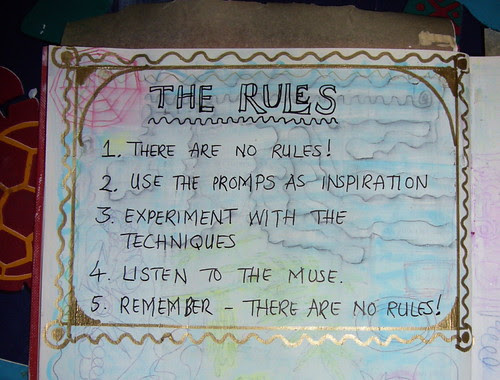 THE RULES
1. THERE ARE NO RULES!
2. USE THE PROMPS AS INSPIRATION
3. EXPERIMENT WITH THE
TECHNIQUES
4. LISTEN TO THE MUSE.
5. REMEMBER - THERE ARE NO RULES!